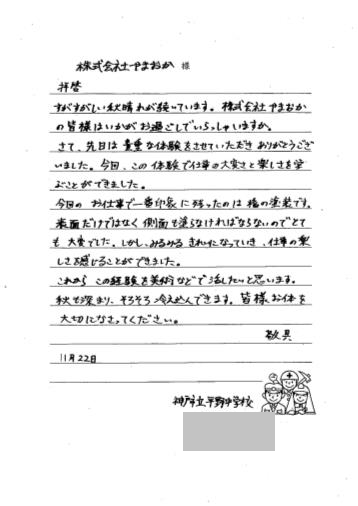 株式会社やまおか 様
拝啓
すがすがしい秋晴れが続いています。株式会社やまおか
の皆様はいかがお過ごしでいらっしゃいますか。
さて、先日は貴重な体験をさせていただきありがとうござ
いました。今回、この体験で仕事の大変さと楽しさを学
ぶことができました。
今回のお仕事で一番印象に残ったのは橋の塗装です。
表面だけではなく側面も塗らなければならないのでとて
も大変でした。しかし、みるみるきれいになっていき、仕事の楽
しさを感じることができました。
これからこの経験を美術などで活したいと思います。
秋も深まり、そろそろ冷え込んできます。皆様お体を
大切になさってください。
敬具
11月22日
神戸市立平野中学校